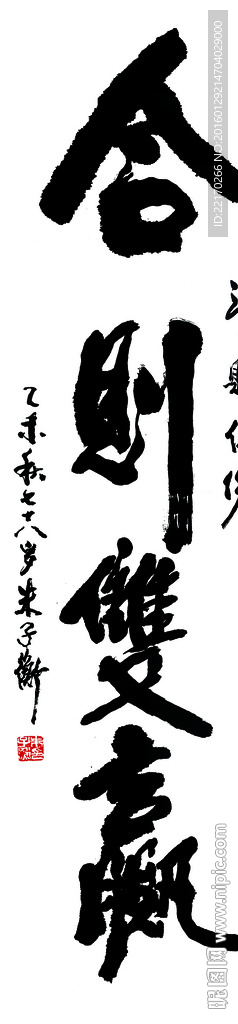 合則雙贏
乙未秋七十八岁朱子衡
22170266 NO:20160129214704029000
昵图网 www.nipic.com